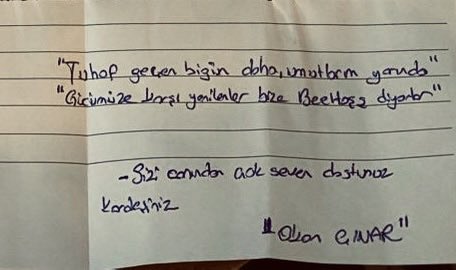 "Tuhaf geçen bigün daha, umutlarım yarında"
"Gücümüze karşı yenilenler bize diyorlar"
- Sizi canından çok seven dostunuz
kardeşiniz
"Okan ÇINAR"